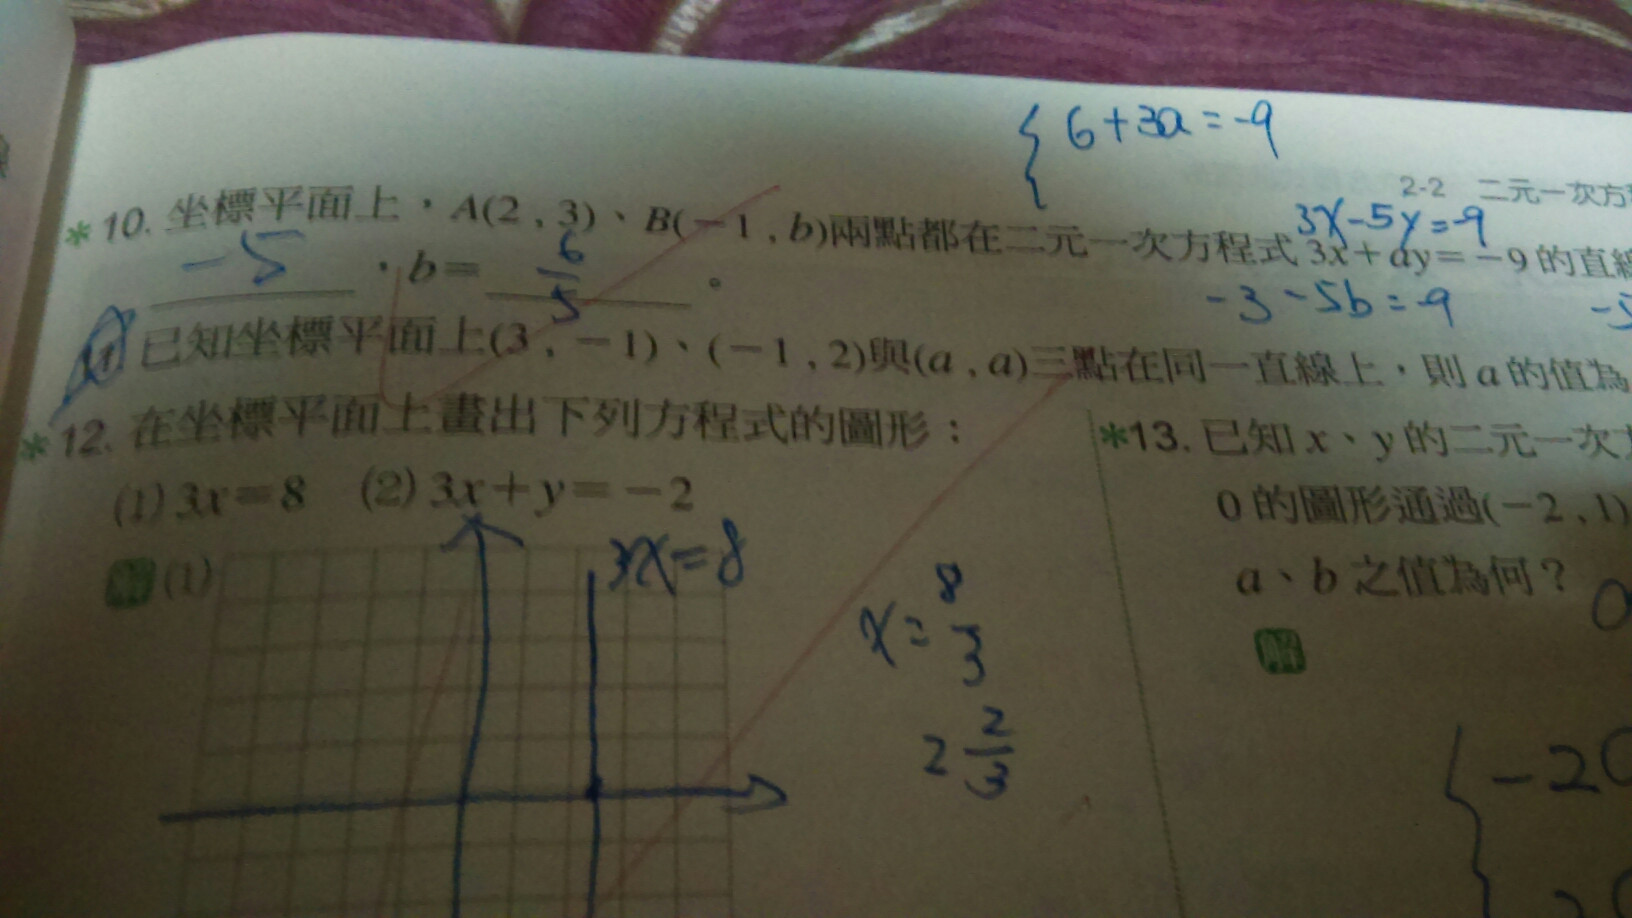 { 6+3a=-9
2-2 二元一次方
3x-5y=-9
*10. 坐標平面上，A(2,3)、B(-1,b)兩點都在二元一次方程式 3x+ay=-9 的直線
-5，b= 6/5 。
-3-5b=-9
-5
11. 已知坐標平面上(3,-1)、(-1,2)與(a,a)三點在同一直線上，則 a 的值為
*12. 在坐標平面上畫出下列方程式的圖形：
(1) 3x=8 (2) 3x+y=-2
解 (1)
3x=8
x= 8/3
2 2/3
*13. 已知 x、y 的二元一次
0 的圖形通過(-2,1)
a、b 之值為何？
解
{ -2